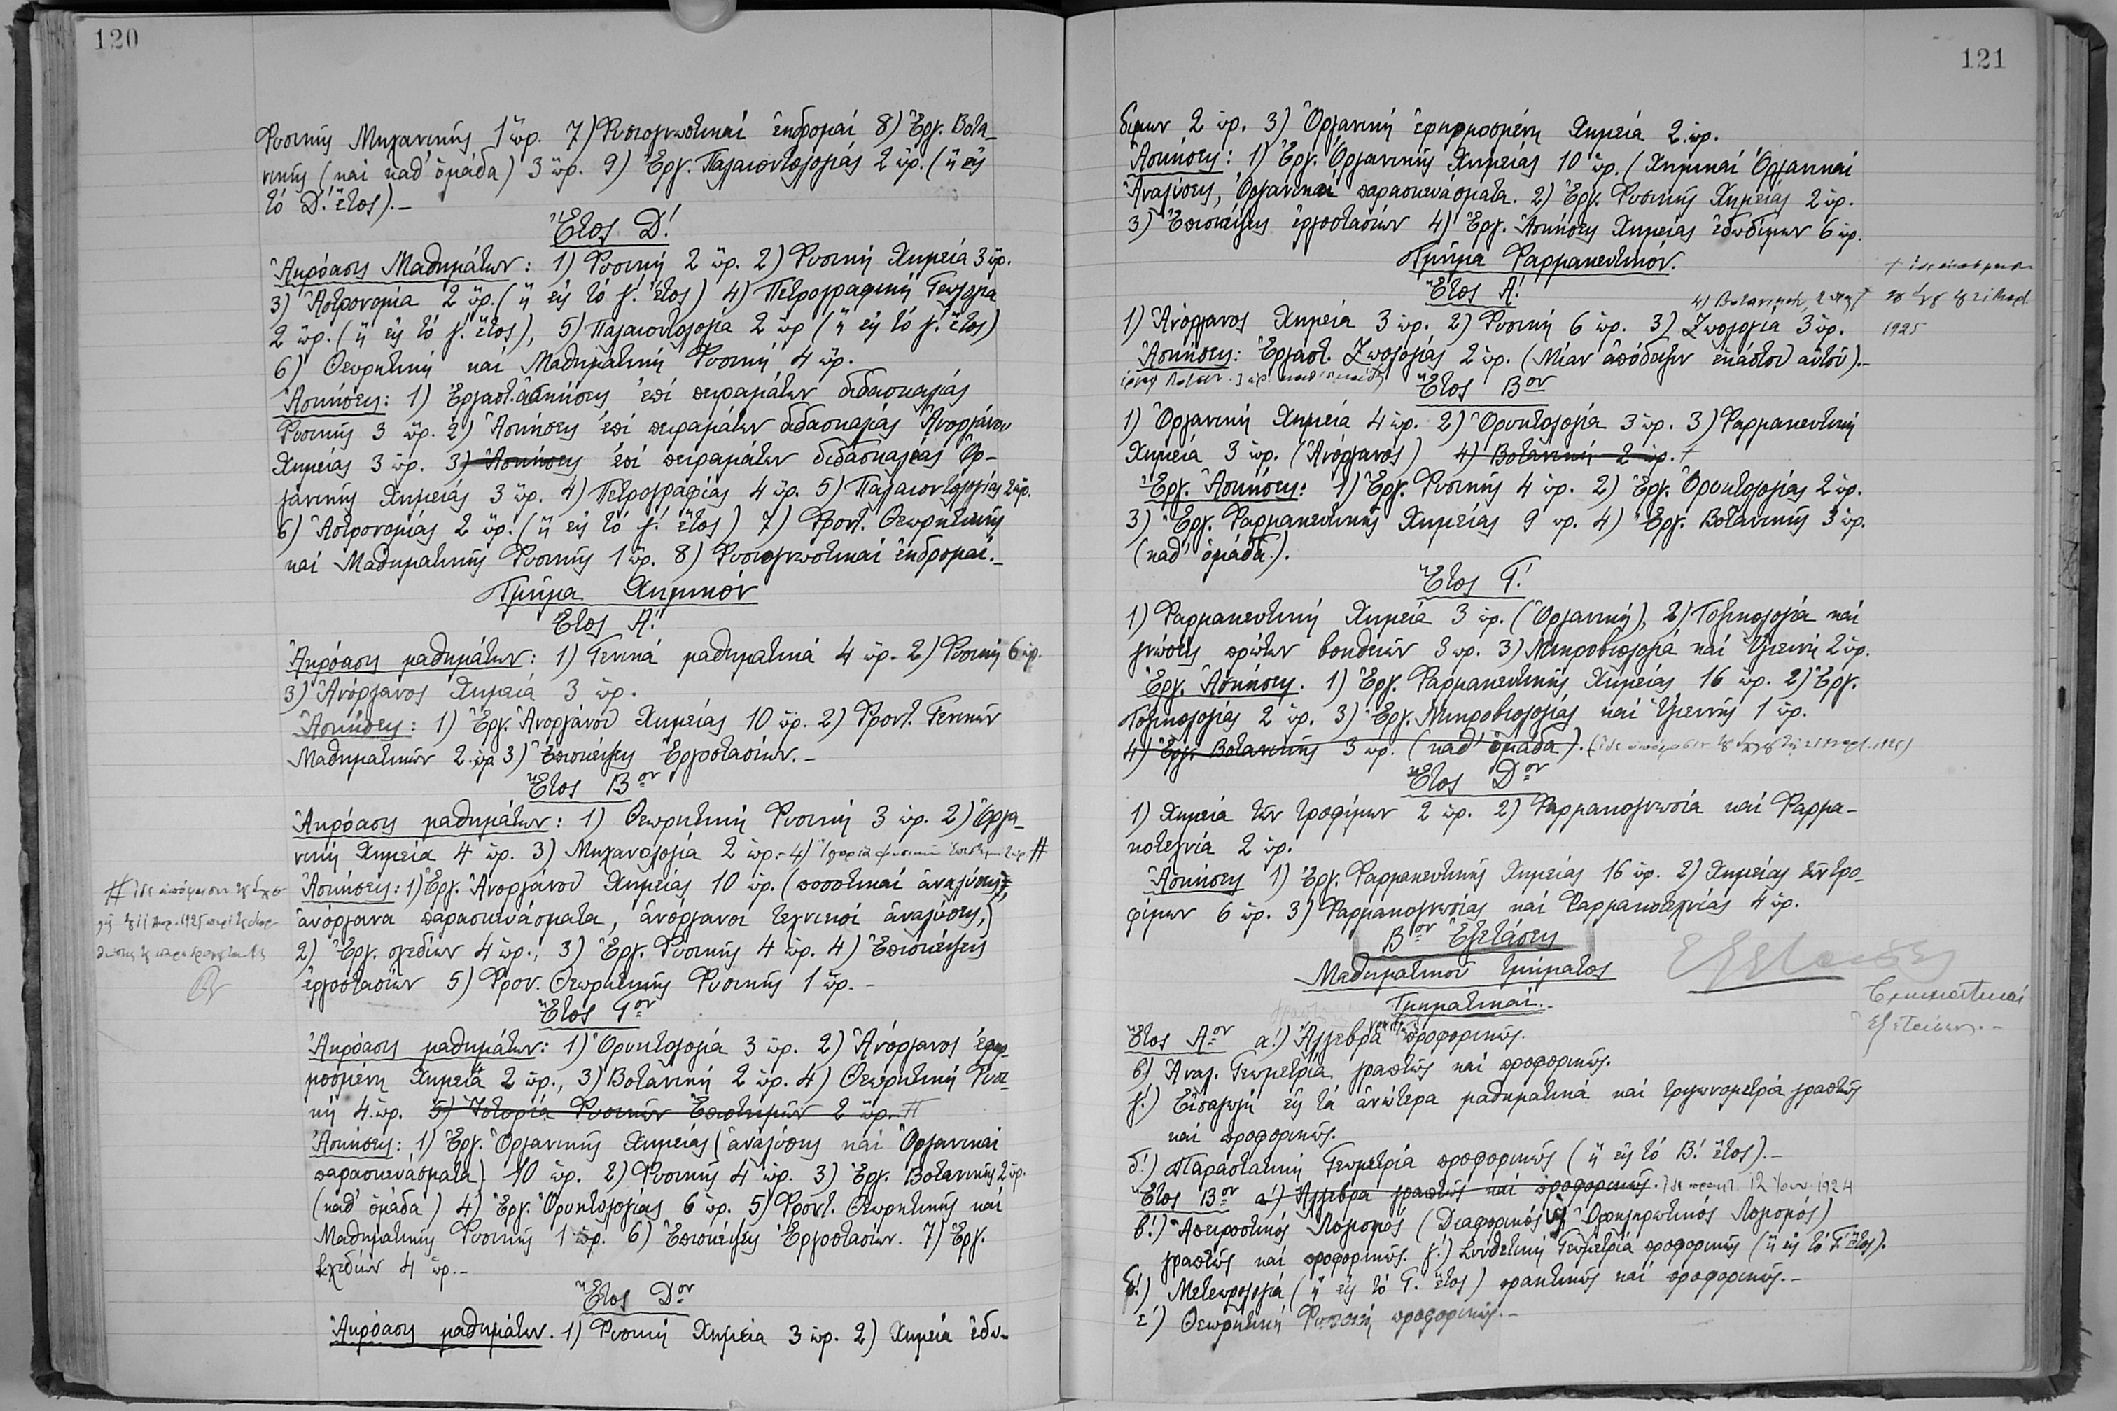 120
Φυσικῆς Μηχανικῆς 1 ὥρ. 7) Φυσιογνωστικαί ἐκδρομαί 8) Ἐργ. Βοτα-
νικῆς (καί καθ' ὁμάδα) 3 ὥρ. 9) Ἐργ. Παλαιοντολογίας 2 ὥρ. (ἤ εἰς
τό Δ! ἔτος).-
Ἔτος Δ!
Ἀκρόασις Μαθημάτων: 1) Φυσική 2 ὥρ. 2) Φυσική Χημεία 3 ὥρ.
3) Ἀστρονομία 2 ὥρ. (ἤ εἰς τό γ! ἔτος) 4) Πετρογραφική Γεωλογία
2 ὥρ. (ἤ εἰς τό γ! ἔτος), 5) Παλαιοντολογία 2 ὥρ (ἤ εἰς τό γ! ἔτος)
6) Θεωρητική καί Μαθηματική Φυσική 4 ὥρ.
Ἀσκήσεις: 1) Ἐργαστ. ἀσκήσεις ἐπί πειραμάτων διδασκαλίας
Φυσικῆς 3 ὥρ. 2) Ἀσκήσεις ἐπί πειραμάτων διδασκαλίας Ἀνοργάνου
Χημείας 3 ὥρ. 3) Ἀσκήσεις ἐπί πειραμάτων διδασκαλίας Ὀρ-
γανικῆς Χημείας 3 ὥρ. 4) Πετρογραφίας 4 ὥρ. 5) Παλαιοντολογίας 2 ὥρ.
6) Ἀστρονομίας 2 ὥρ. (ἤ εἰς τό γ! ἔτος) 7) Φροντ. Θεωρητικῆς
καί Μαθηματικῆς Φυσικῆς 1 ὥρ. 8) Φυσιογνωστικαί ἐκδρομαί.-
Τμῆμα Χημικόν
Ἔτος Α!
Ἀκρόασις μαθημάτων: 1) Γενικά μαθηματικά 4 ὥρ. 2) Φυσική 6 ὥρ.
3) Ἀνόργανος Χημεία 3 ὥρ.
Ἀσκήσεις: 1) Ἐργ. Ἀνοργάνου Χημείας 10 ὥρ. 2) Φροντ. Γενικῶν
Μαθηματικῶν 2 ὥρ 3) Ἐπισκέψεις Ἐργοστασίων.-
Ἔτος Βον
Ἀκρόασις μαθημάτων: 1) Θεωρητική Φυσική 3 ὥρ. 2) Ὀργα-
νική Χημεία 4 ὥρ. 3) Μηχανολογία 2 ὥρ. 4) Ἱστορία φυσικῶν ἐπιστημ. 2 ὥρ #
Ἀσκήσεις: 1) Ἐργ. Ἀνοργάνου Χημείας 10 ὥρ. (ποσοτικαί ἀναλύσεις,
ἀνόργανα παρασκευάσματα, ἀνόργανοι τεχνικοί ἀναλύσεις,)
2) Ἐργ. σχεδίων 4 ὥρ., 3) Ἐργ. Φυσικῆς 4 ὥρ. 4) Ἐπισκέψεις
ἐργοστασίων 5) Φρον. Θεωρητικῆς Φυσικῆς 1 ὥρ.-
# ἴδε ἀπόφασιν
1925
Ἔτος Γον
Ἀκρόασις μαθημάτων: 1) Ὀρυκτολογία 3 ὥρ. 2) Ἀνόργανος ἐφηρ-
μοσμένη Χημεία 2 ὥρ., 3) Βοτανική 2 ὥρ. 4) Θεωρητική Φυσι-
κή 4 ὥρ. 5) Ἱστορία Φυσικῶν Ἐπιστημῶν 2 ὥρ. #
Ἀσκήσεις: 1) Ἐργ. Ὀργανικῆς Χημείας (ἀναλύσεις καί Ὀργανικαί
παρασκευάσματα) 10 ὥρ. 2) Φυσικῆς 4 ὥρ. 3) Ἐργ. Βοτανικῆς 2 ὥρ.
(καθ' ὁμάδα) 4) Ἐργ. Ὀρυκτολογίας 6 ὥρ. 5) Φροντ. Θεωρητικῆς καί
Μαθηματικῆς Φυσικῆς 1 ὥρ. 6) Ἐπισκέψεις Ἐργοστασίων. 7) Ἐργ.
Σχεδίων 4 ὥρ.-
Ἔτος Δον
Ἀκρόασις μαθημάτων. 1) Φυσική Χημεία 3 ὥρ. 2) Χημεία ἐδω-
121
δίμων 2 ὥρ. 3) Ὀργανική ἐφηρμοσμένη Χημεία 2 ὥρ.
Ἀσκήσεις: 1) Ἐργ. Ὀργανικῆς Χημείας 10 ὥρ. (Χημικαί Ὀργανικαί
Ἀναλύσεις, Ὀργανικαί παρασκευάσματα. 2) Ἐργ. Φυσικῆς Χημείας 2 ὥρ.
3) Ἐπισκέψεις ἐργοστασίων 4) Ἐργ. Ἀσκήσεις Χημείας ἐδωδίμων 6 ὥρ.
Τμῆμα Φαρμακευτικόν.
Ἔτος Α!
4) Βοτανική, 2 ὥρ †
† ἴδε ἀπόφασιν
1925
1) Ἀνόργανος Χημεία 3 ὥρ. 2) Φυσική 6 ὥρ. 3) Ζωολογία 3 ὥρ.
Ἀσκήσεις: Ἐργαστ. Ζωολογίας 2 ὥρ. (Μίαν ἀπόδειξιν ἑκάστου αὐτοῦ).-
Ἔτος Βον
1) Ὀργανική Χημεία 4 ὥρ. 2) Ὀρυκτολογία 3 ὥρ. 3) Φαρμακευτική
Χημεία 3 ὥρ. (Ἀνόργανος) 4) Βοτανική 2 ὥρ. †
Ἐργ. Ἀσκήσεις: 1) Ἐργ. Φυσικῆς 4 ὥρ. 2) Ἐργ. Ὀρυκτολογίας 2 ὥρ.
3) Ἐργ. Φαρμακευτικῆς Χημείας 9 ὥρ. 4) Ἐργ. Βοτανικῆς 3 ὥρ.
(καθ' ὁμάδα).
Ἔτος Γ!
1) Φαρμακευτική Χημεία 3 ὥρ. (Ὀργανική), 2) Τοξικολογία καί
γνώσεις πρώτων βοηθειῶν 3 ὥρ. 3) Μικροβιολογία καί Ὑγιεινή 2 ὥρ.
Ἐργ. Ἀσκήσεις. 1) Ἐργ. Φαρμακευτικῆς Χημείας 16 ὥρ. 2) Ἐργ.
Τοξικολογίας 2 ὥρ. 3) Ἐργ. Μικροβιολογίας καί Ὑγιεινῆς 1 ὥρ.
4) Ἐργ. Βοτανικῆς 3 ὥρ. (καθ' ὁμάδα).
Ἔτος Δον
1) Χημεία τῶν τροφίμων 2 ὥρ. 2) Φαρμακογνωσία καί Φαρμα-
κοτεχνία 2 ὥρ.
Ἀσκήσεις 1) Ἐργ. Φαρμακευτικῆς Χημείας 16 ὥρ. 2) Χημείας τῶν τρο-
φίμων 6 ὥρ. 3) Φαρμακογνωσίας καί Φαρμακοτεχνίας 4 ὥρ.
Βον Ἐξετάσεις
Ἐξετάσεις
Μαθηματικοῦ τμήματος
Τμηματικαί.-
Ἔτος Αον α!) Ἄλγεβρα προφορικῶς.
β) Ἀναλ. Γεωμετρία γραπτῶς καί προφορικῶς.
γ.) Εἰσαγωγή εἰς τά ἀνώτερα μαθηματικά καί τριγωνομετρία γραπτῶς
καί προφορικῶς.
δ!) Παραστατική Γεωμετρία προφορικῶς (ἤ εἰς τό Β! ἔτος).-
Ἔτος Βον α!) Ἄλγεβρα γραπτῶς καί προφορικῶς. ἴδε πρακτ. 12 Ἰουν. 1924
β!) Ἀπειροστικός Λογισμός (Διαφορικός ἤ Ὁλοκληρωτικός Λογισμός)
γραπτῶς καί προφορικῶς. γ!) Συνθετική Γεωμετρία προφορικῶς (ἤ εἰς τό Γ! ἔτος).
δ!) Μετεωρολογία (ἤ εἰς τό Γ. ἔτος) πρακτικῶς καί προφορικῶς.-
ε!) Θεωρητική Φυσική προφορικῶς.-